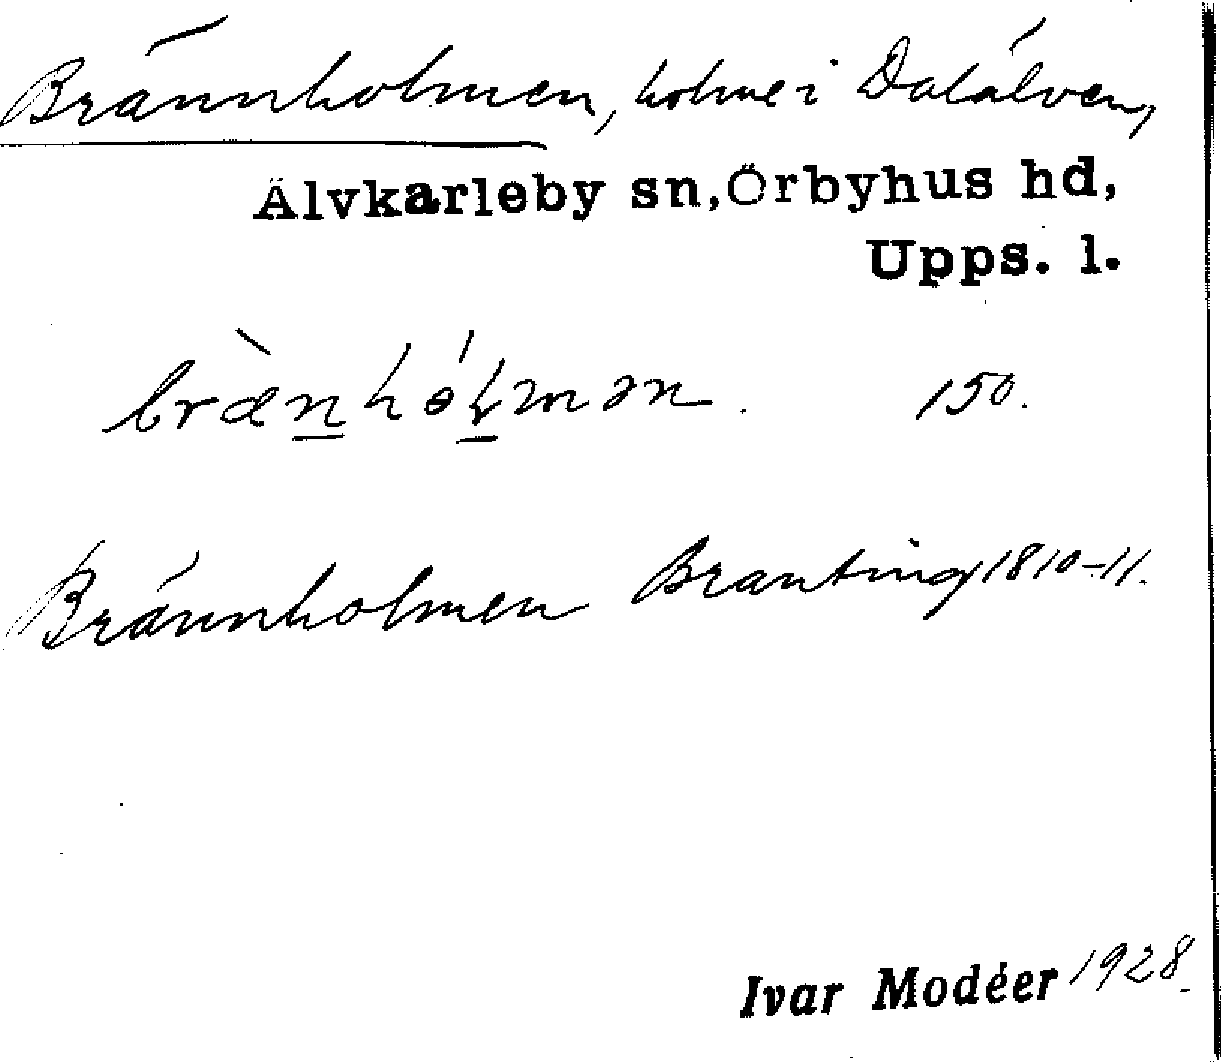 Brännholmen, holme i Dalälven,
Älvkarleby sn, Örbyhus hd,
Upps. l.
150.
Brännholmen Branting 1810-11.
Ivar Modéer 1928.